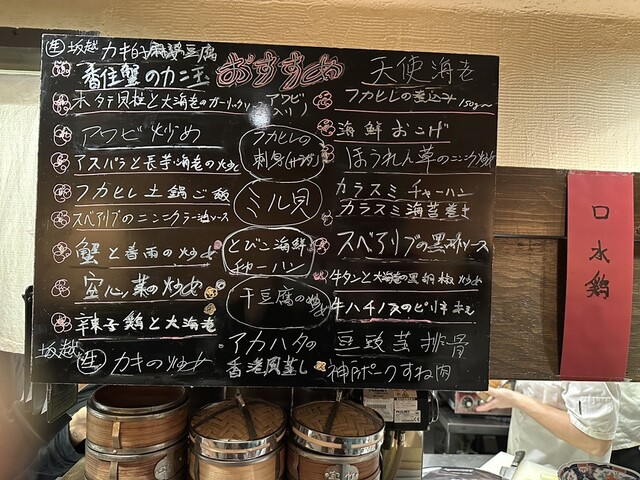 生 坂越 カキ的麻婆豆腐
香住蟹のカニ玉
ホタテ貝柱と大海老のガーリック
アワビ炒め
アスパラと長芋海老の炒め
フカヒレ土鍋ご飯
スペアリブのニンニクラー油ソース
蟹と春雨の炒め
空心菜の炒め
辣子鶏と大海老
坂越 生 カキの炒め
おすすめ
アワビ入り
フカヒレの刺身(サラダ)
ミル貝
とびこ海鮮チャーハン
干豆腐の炒め
アカハタの香港風蒸し
天使海老
フカヒレの煮込み 150g〜
海鮮おこげ
ほうれん草のニンニク炒め
カラスミチャーハン
カラスミ海苔巻き
スペアリブの黒酢ソース
牛タンと大海老の黒胡椒炒め
牛ハチノスのピリ辛和え
豆豉蒸排骨
神戸ポークすね肉
口水鶏